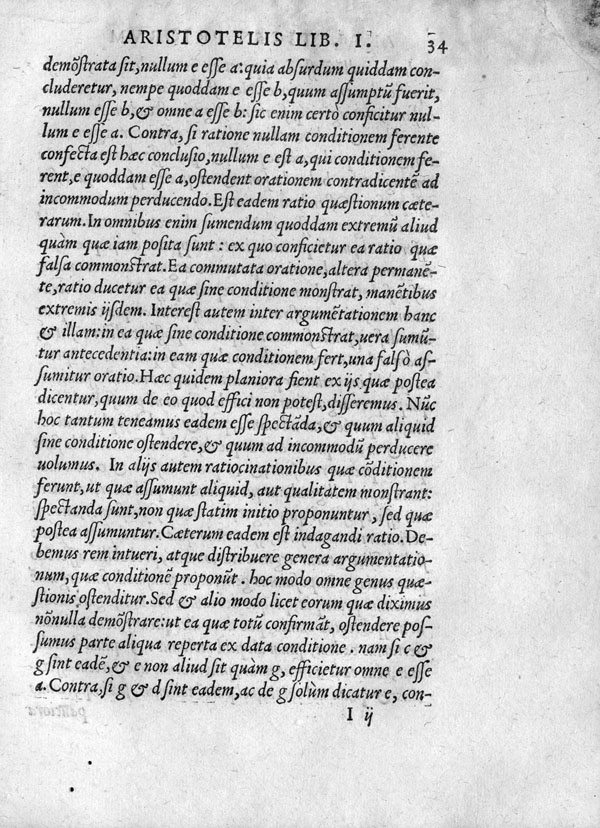 ARISTOTELIS LIB. I. 34
demõstrata sit, nullum e esse a: quia absurdum quiddam con-
cluderetur, nempe quoddam e esse b, quum assumptũ fuerit,
nullum esse b, & omne a esse b: sic enim certò conficitur nul-
lum e esse a. Contra, si ratione nullam conditionem ferente
confecta est hæc conclusio, nullum e est a, qui conditionem fe-
rent, e quoddam esse a, ostendent orationem contradicentẽ ad
incommodum perducendo. Est eadem ratio quæstionum cæte-
rarum. In omnibus enim sumendum quoddam extremũ aliud
quàm quæ iam posita sunt: ex quo conficietur ea ratio quæ
falsa commonstrat. Ea commutata oratione, altera permanẽ-
te, ratio ducetur ea quæ sine conditione mõnstrat, manẽtibus
extremis ijsdem. Interest autem inter argumẽtationem hanc
& illam: in ea quæ sine conditione commonstrat, uera sumũ-
tur antecedentia: in eam quæ conditionem fert, una falsò as-
sumitur oratio. Hæc quidem planiora fient ex ijs quæ postea
dicentur, quum de eo quod effici non potest, disseremus. Nũc
hoc tantum teneamus eadem esse spectãda, & quum aliquid
sine conditione ostendere, & quum ad incommodũ perducere
uolumus. In alijs autem ratiocinationibus quæ cõditionem
ferunt, ut quæ assumunt aliquid, aut qualitatem monstrant:
spectanda sunt, non quæ statim initio proponuntur, sed quæ
postea assumuntur. Cæterum eadem est indagandi ratio. De-
bemus rem intueri, atque distribuere genera argumentatio-
num, quæ conditionẽ proponũt. hoc modo omne genus quæ-
stionis ostenditur. Sed & alio modo licet eorum quæ diximus
nõnulla demõstrare: ut ea quæ totũ confirmãt, ostendere pos-
sumus parte aliqua reperta ex data conditione. nam si c &
g sint eadẽ, & e non aliud sit quàm g, efficietur omne e esse
a. Contra, si g & d sint eadem, ac de g solùm dicatur e, con-
I ij